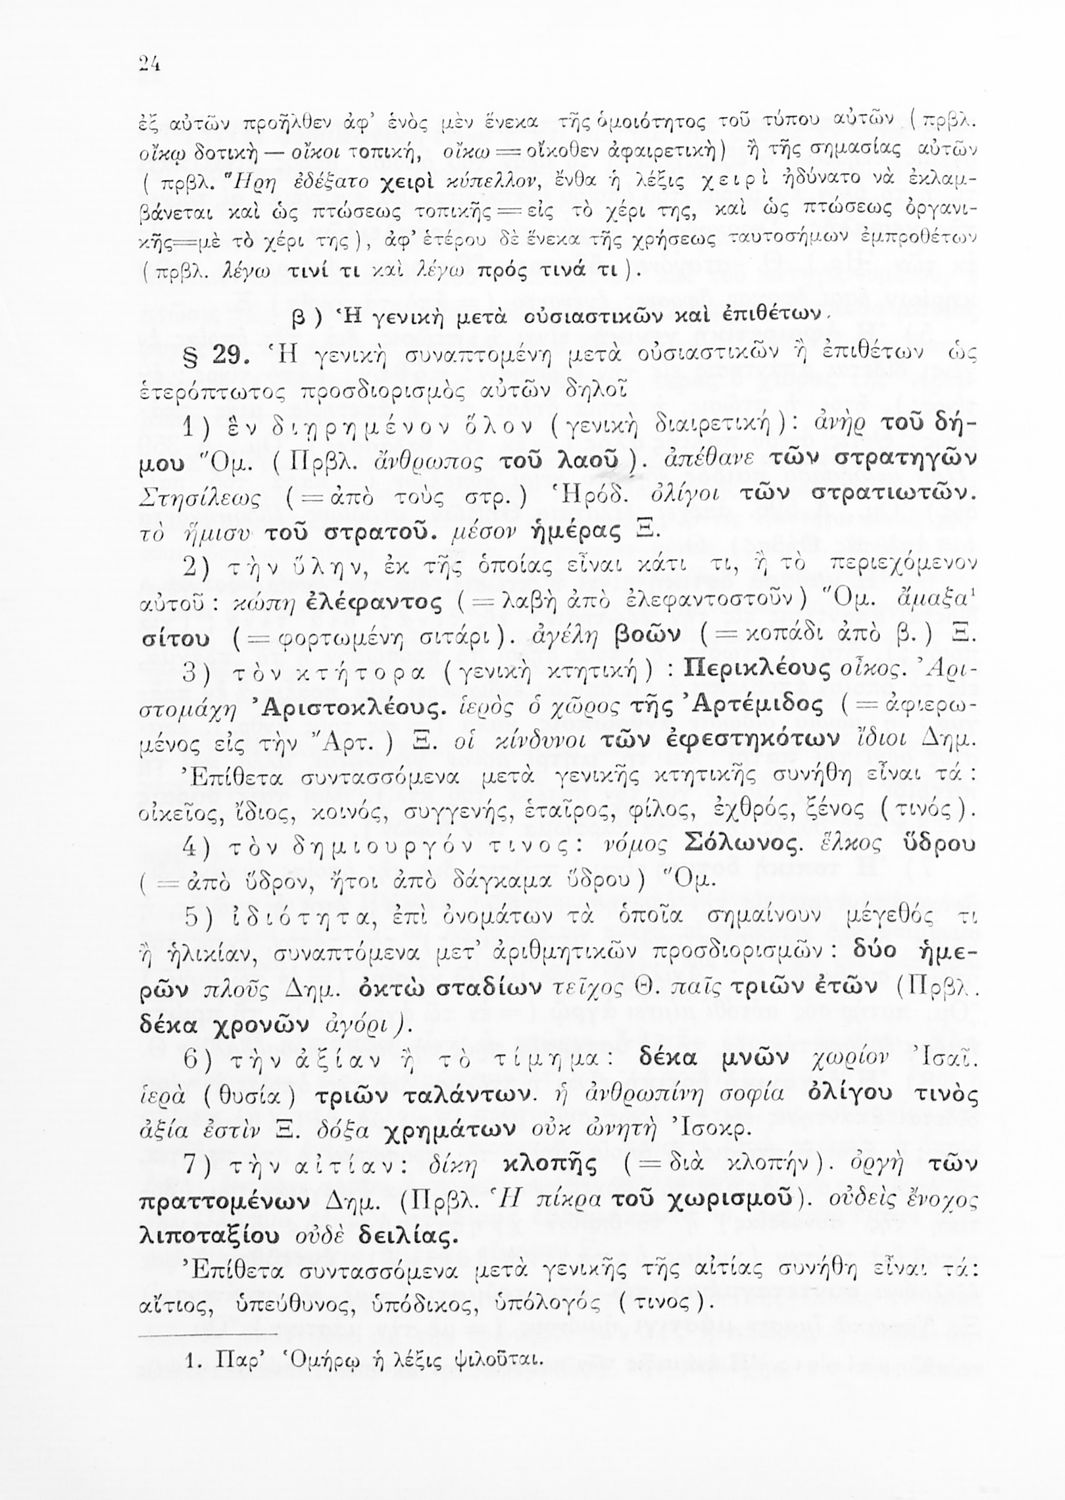 24
ἐξ αὐτῶν προῆλθεν ἀφ' ἑνὸς μὲν ἕνεκα τῆς ὁμοιότητος τοῦ τύπου αὐτῶν (πρβλ.
οἴκῳ δοτικὴ — οἴκοι τοπική, οἴκω = οἴκοθεν ἀφαιρετικὴ) ἢ τῆς σημασίας αὐτῶν
( πρβλ. Ἥρη ἐδέξατο χειρὶ κύπελλον, ἔνθα ἡ λέξις χειρὶ ἠδύνατο νὰ ἐκλαμ-
βάνεται καὶ ὡς πτώσεως τοπικῆς = εἰς τὸ χέρι της, καὶ ὡς πτώσεως ὀργανι-
κῆς=μὲ τὸ χέρι της), ἀφ' ἑτέρου δὲ ἕνεκα τῆς χρήσεως ταυτοσήμων ἐμπροθέτων
(πρβλ. λέγω τινί τι καὶ λέγω πρός τινά τι).
β) Ἡ γενικὴ μετὰ οὐσιαστικῶν καὶ ἐπιθέτων.
§ 29. Ἡ γενικὴ συναπτομένη μετὰ οὐσιαστικῶν ἢ ἐπιθέτων ὡς
ἑτερόπτωτος προσδιορισμὸς αὐτῶν δηλοῖ
1) ἓν διῃρημένον ὅλον (γενικὴ διαιρετική): ἀνὴρ τοῦ δή-
μου Ὅμ. (Πρβλ. ἄνθρωπος τοῦ λαοῦ). ἀπέθανε τῶν στρατηγῶν
Στησίλεως (= ἀπὸ τοὺς στρ.) Ἡρόδ. ὀλίγοι τῶν στρατιωτῶν.
τὸ ἥμισυ τοῦ στρατοῦ. μέσον ἡμέρας Ξ.
2) τὴν ὕλην, ἐκ τῆς ὁποίας εἶναι κάτι τι, ἢ τὸ περιεχόμενον
αὐτοῦ: κώπη ἐλέφαντος (= λαβὴ ἀπὸ ἐλεφαντοστοῦν) Ὅμ. ἄμαξα¹
σίτου (= φορτωμένη σιτάρι). ἀγέλη βοῶν (= κοπάδι ἀπὸ β.) Ξ.
3) τὸν κτήτορα (γενικὴ κτητική) : Περικλέους οἶκος. Ἀρι-
στομάχη Ἀριστοκλέους. ἱερὸς ὁ χῶρος τῆς Ἀρτέμιδος (= ἀφιερω-
μένος εἰς τὴν Ἄρτ.) Ξ. οἱ κίνδυνοι τῶν ἐφεστηκότων ἴδιοι Δημ.
Ἐπίθετα συντασσόμενα μετὰ γενικῆς κτητικῆς συνήθη εἶναι τά:
οἰκεῖος, ἴδιος, κοινός, συγγενής, ἑταῖρος, φίλος, ἐχθρός, ξένος (τινός).
4) τὸν δημιουργόν τινος: νόμος Σόλωνος. ἕλκος ὕδρου
(= ἀπὸ ὕδρον, ἤτοι ἀπὸ δάγκαμα ὕδρου) Ὅμ.
5) ἰδιότητα, ἐπὶ ὀνομάτων τὰ ὁποῖα σημαίνουν μέγεθός τι
ἢ ἡλικίαν, συναπτόμενα μετ' ἀριθμητικῶν προσδιορισμῶν: δύο ἡμε-
ρῶν πλοῦς Δημ. ὀκτὼ σταδίων τεῖχος Θ. παῖς τριῶν ἐτῶν (Πρβλ.
δέκα χρονῶν ἀγόρι).
6) τὴν ἀξίαν ἢ τὸ τίμημα: δέκα μνῶν χωρίον Ἰσαῖ.
ἱερὰ (θυσία) τριῶν ταλάντων. ἡ ἀνθρωπίνη σοφία ὀλίγου τινὸς
ἀξία ἐστὶν Ξ. δόξα χρημάτων οὐκ ὠνητὴ Ἰσοκρ.
7) τὴν αἰτίαν: δίκη κλοπῆς (= διὰ κλοπήν). ὀργὴ τῶν
πραττομένων Δημ. (Πρβλ. Ἡ πίκρα τοῦ χωρισμοῦ). οὐδεὶς ἔνοχος
λιποταξίου οὐδὲ δειλίας.
Ἐπίθετα συντασσόμενα μετὰ γενικῆς τῆς αἰτίας συνήθη εἶναι τά:
αἴτιος, ὑπεύθυνος, ὑπόδικος, ὑπόλογός (τινος).
1. Παρ' Ὁμήρῳ ἡ λέξις ψιλοῦται.